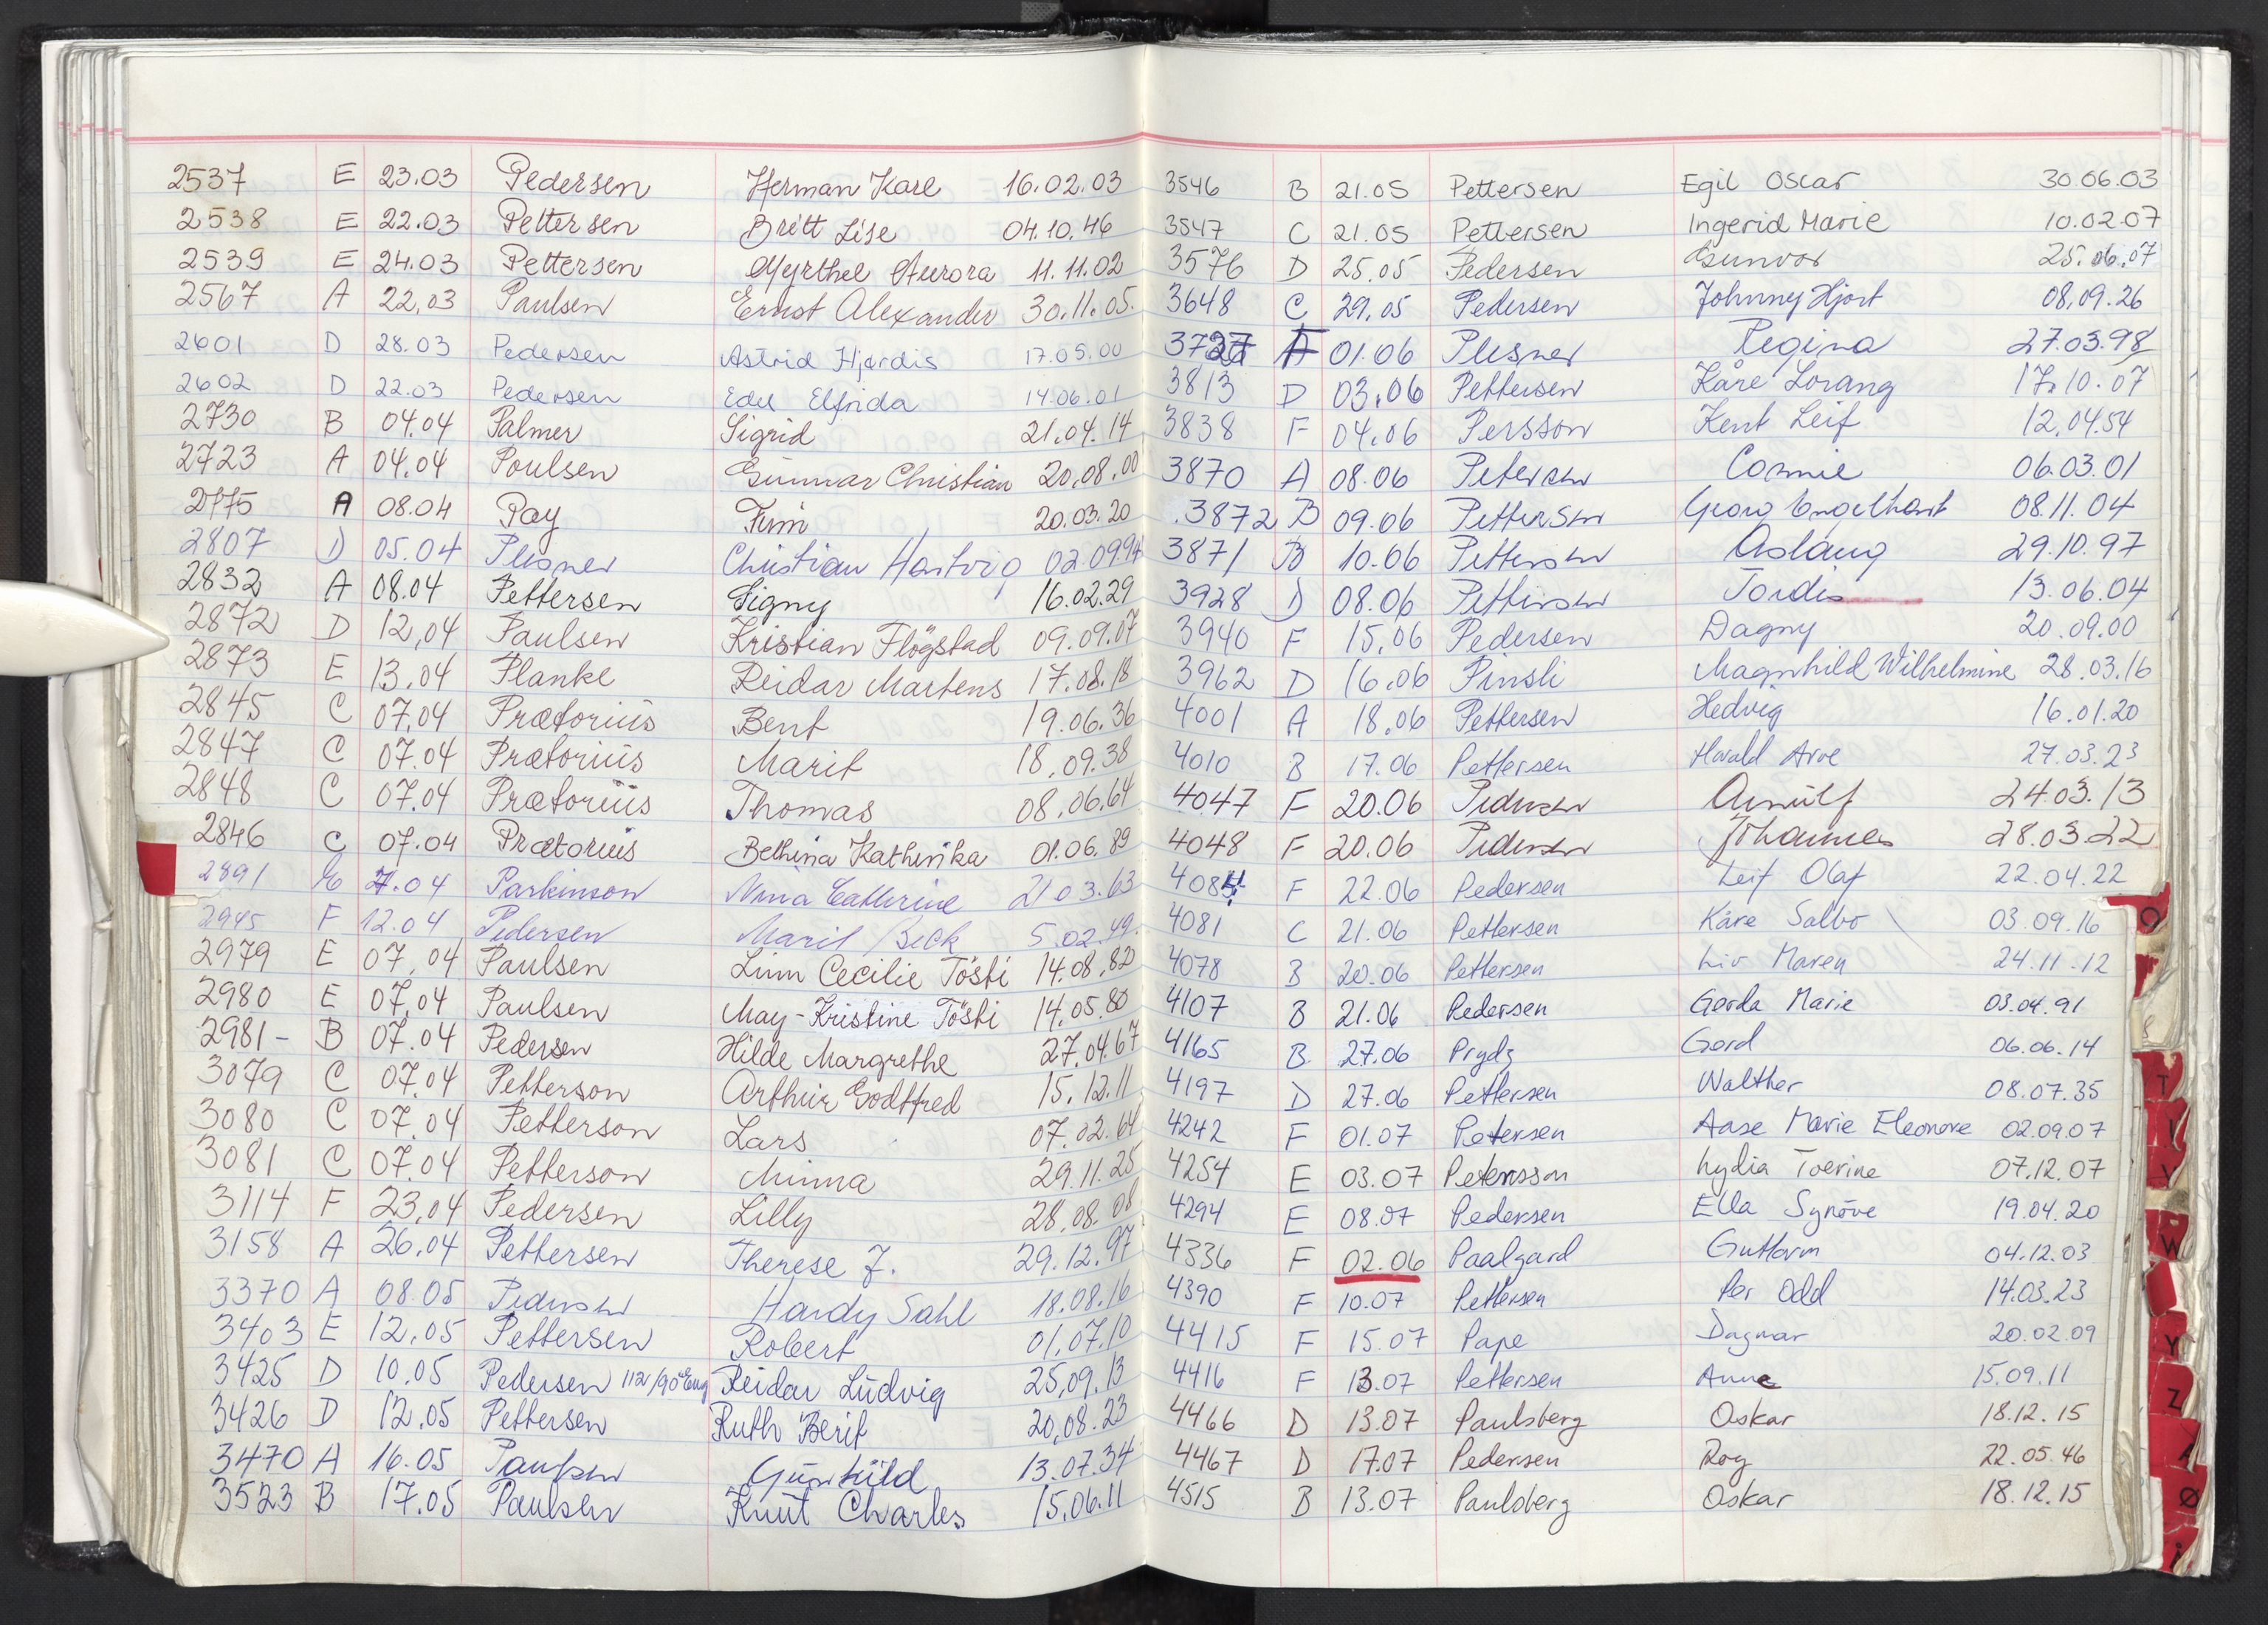 2537 E 23.03 Pedersen Herman Karl 16.02.03
2538 E 22.03 Pettersen Britt Lise 04.10.46
2539 E 24.03 Pettersen Myrthel Aurora 11.11.02
2567 A 22,03 Paulsen Ernst Alexander 30.11.05.
2601 D 28.03 Pedersen Astrid Hjørdis 17.05.00
2602 D 22.03 Pedersen Edel Elfrida 14.06.01
2730 B 04.04 Palmer Sigrid 21.04.14
2723 A 04.04 Poulsen Gunnar Christian 20,08.00
2775 A 08.04 Pay Finn 20.03.20
2807 D 05.04 Plesner Christian Hartvig 02.0994
2832 A 08.04 Pettersen Signy 16.02.29
2872 D 12,04 Paulsen Kristian Flögstad 09.09.07
2873 E 13.04 Planke Reidar Martens 17.08.18
2845 C 07.04 Prætorius Bent 19.06.36
2847 C 07.04 Prætorius Marit 18,09.38
2848 C 07.04 Prætorius Thomas 08,06.64
2846 C 07.04 Prætorius Bethina Kathinka 01.06.89
2891 E 7.04 Parkinson Nina Cathrine 2103.63
2945 F 12.04 Pedersen Marit Beck 5.02.49.
2979 E 07,04 Paulsen Linn Cecilie Tösti 14.08,82
2980 E 07,04 Paulsen May-Kristine Tösti 14.05.80
2981- B 07.04 Pedersen Hilde Margrethe 27.04.67
3079 C 07.04 Petterson Arthur Godtfred 15.12.11
3080 C 07.04 Petterson Lars 07.02.64
3081 C 07.04 Petterson Minna 29.11.25
3114 F 23,04 Pedersen Lilly 28.08.08
3158 A 26,04 Pettersen Therese J. 29.12.97
3370 A 08.05 Pedersen Hardy Sahl 18.08.16
3403 E 12,05 Pettersen Robert 01.07.10
3425 D 10,05 Pedersen 112/90 Reidar Ludvig 25,09.13
3426 D 12.05 Pettersen Ruth Berit 20,08.23
3470 A 16.05 Paulsen Gunhild 13.07.34
3523 B 17.05 Paulsen Knut Charles 15.06.11
3546 B 21.05 Pettersen Egil Oscar 30.06.03
3547 C 21.05 Pettersen Ingerid Marie 10.02.07
3576 D 25.05 Pedersen Gunvor 25.06.07
3648 C 29,05 Pedersen Johnny Hjort 08,09.26
3727 A 01.06 Plesner Regina 27.03.98
3813 D 03.06 Pettersen Kåre Lorang 17.10.07
3838 F 04.06 Persson Kent Leif 12,04.54
3870 A 08.06 Petersen Connie 06.03.01
3872 B 09.06 Pettersen Georg Engelhart 08.11.04
3871 B 10.06 Pettersen Aslaug 29.10.97
3928 D 08.06 Pettersen Tordis 13.06.04
3940 F 15,06 Pedersen Dagny 20.09.00
3962 D 16.06 Pinsli Magnhild Wilhelmine 28.03.16
4001 A 18.06 Pettersen Hedvig 16.01.20
4010 B 17.06 Pettersen Harald Arve 27.03.23
4047 F 20.06 Pedersen Arnulf 24.03.13
4048 F 20.06 Pedersen Johannes 28.03.22
4084 F 22.06 Pedersen Leif Olaf 22.04.22
4081 C 21.06 Pettersen Kåre Salbo 03.09.16
4078 B 20.06 Pettersen Liv Maren 24.11.12
4107 B 21.06 Pedersen Gerda Marie 03.04.91
4165 B 27.06 Prydz Gerd 06.06.14
4197 D 27.06 Pettersen Walther 08.07.35
4242 F 01.07 Petersen Aase Marie Eleonore 02.09.07
4254 E 03.07 Petersson Lydia Toerine 07.12.07
4294 E 08.07 Pedersen Ella Synöve 19.04.20
4336 F 02.06 Paalgard Guttorm 04.12.03
4390 F 10.07 Pettersen Per Odd 14.03.23
4415 F 15.07 Pape Dagmar 20.02.09
4416 F 13.07 Pettersen Anna 15.09.11
4466 D 13.07 Paulsberg Oskar 18.12.15
4467 D 17.07 Pedersen Roy 22.05.46
4515 B 13.07 Paulsberg Oskar 18.12.15
O
T
V
W
Y
Z
Ø